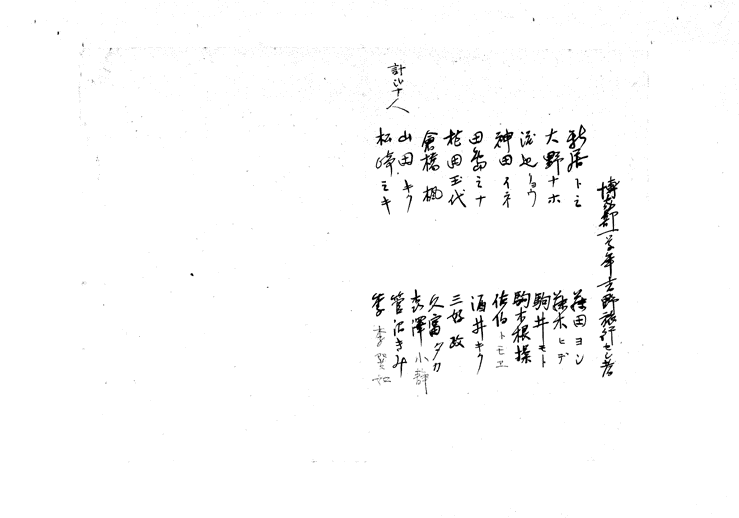 博家部一学年吉野旅行セシ者
新居トミ
大野ナホ
神田イネ
田島ミナ
植田玉代
倉橋楓
山田キク
松峰ミキ
藤田ヨシ
藤木ヒデ
駒井モト
駒木根操
佐伯トモヱ
酒井キク
三好政
久富タカ
袁澤小静
菅沼きみ
李李
計 人